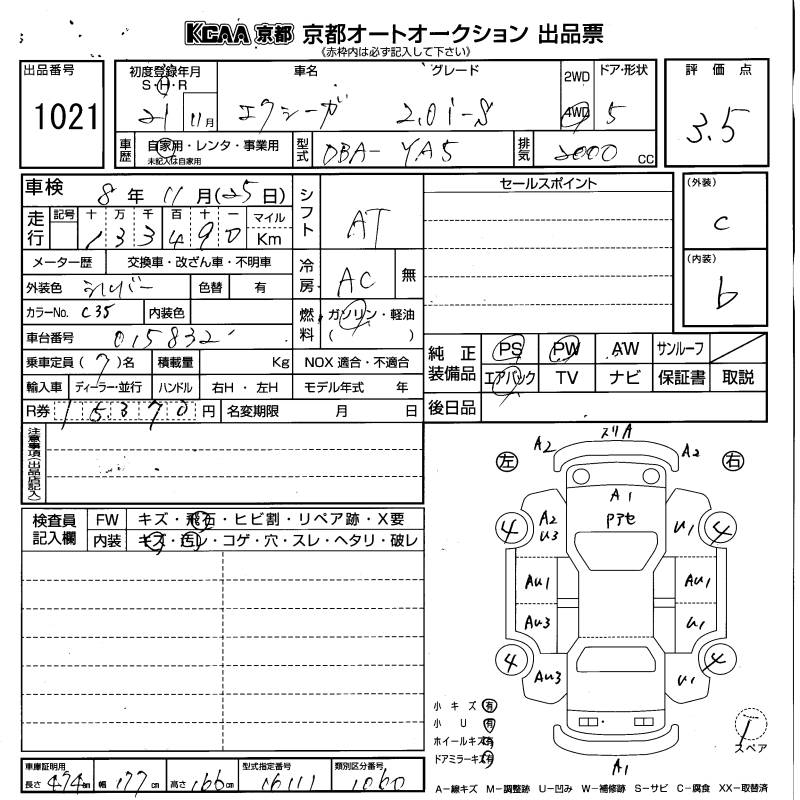 KCAA 京都 京都オートオークション 出品票
(赤枠内は必ず記入して下さい)
出品番号 1021
初度登録年月 車名 グレード 2WD ドア・形状 評価点
S・H・R 21 11月 エクシーガ 2.0i-S 4WD 5 3.5
車歴 自家用・レンタ・事業用 型式 DBA- YA5 排気 2000 CC
未記入は自家用
車検 8年 11月(25日) シフト AT セールスポイント (外装) C
走行 記号 十 万 千 百 十 一 マイル
1 3 3 4 9 0 Km
メーター歴 交換車・改ざん車・不明車 冷房 AC 無 (内装) b
外装色 シルバー 色替 有
カラーNo. C35 内装色 燃料 ガソリン・軽油
( )
車台番号 015832
乗車定員(7)名 積載量 Kg NOX 適合・不適合 純正装備品 PS PW AW サンルーフ
輸入車 ディーラー・並行 ハンドル 右H・左H モデル年式 年 エアバック TV ナビ 保証書 取説
R券 15370円 名変期限 月 日 後日品
注意事項(出品店記入)
左 A2 スリA A2 右
A1
Pアセ
検査員記入欄 FW キズ・飛石・ヒビ割・リペア跡・X要
内装 キズ・汚レ・コゲ・穴・スレ・ヘタリ・破レ
4 A2 U3 U1 4
AU1 AU1
AU3 U1
4 AU3 U1 4
小キズ 有
小U 有
ホイールキズ 有
ドアミラーキズ 有
T
スペア
A1
車庫証明用 型式指定番号 類別区分番号
長さ 474cm 幅 177cm 高さ 166cm 16111 1060
A-線キズ M-調整跡 U-凹み W-補修跡 S-サビ C-腐食 XX-取替済